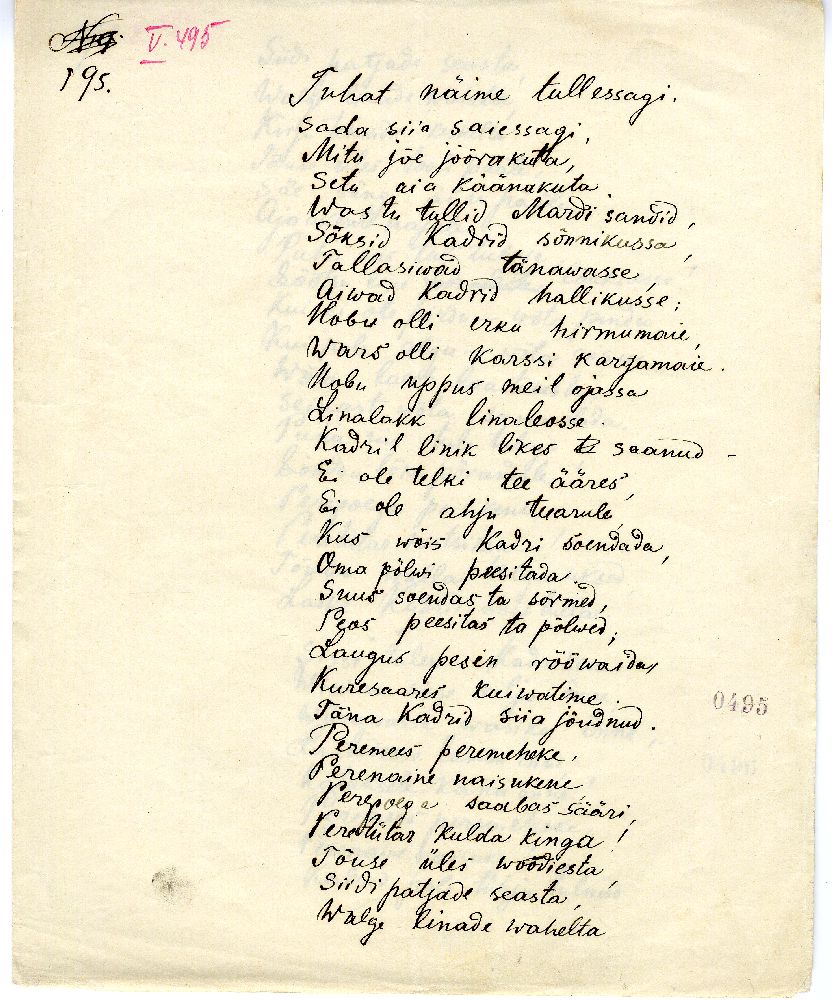 V. 495
195.
Tuhat näime tullessagi.
Sada siia saiessagi,
Mitu jõe jöörakutta,
Setu aia käänakuta
Wastu tullid Mardi sandid,
Sõksid Kadrid sõnnikussa,
Tallasiwad tänawasse,
Aiwad Kadrid hallikusse;
Hobu olli erku hirmumaie,
Wars olli karssi kargamaie.
Hobu uppus meil ojassa
Linalakk linaleosse.
Kadril linik likes saanud –
Ei ole telki tee ääres,
Ei ole ahju tearule,
Kus wõis Kadri soendada,
Oma põlwi peesitada.
Suus soendas ta sõrmed,
Peos peesitas ta põlwed;
Laugus pesin rööwaida,
Kuresaares kuiwatime.
Täna Kadrid siia jõudnud.
Peremees peremeheke,
Perenaine naisukene
Perepoega saabas sääri,
Peretütar kulda kinga!
Tõuse üles woodiesta,
Siidi patjade seasta,
Walge linade wahelta
0495